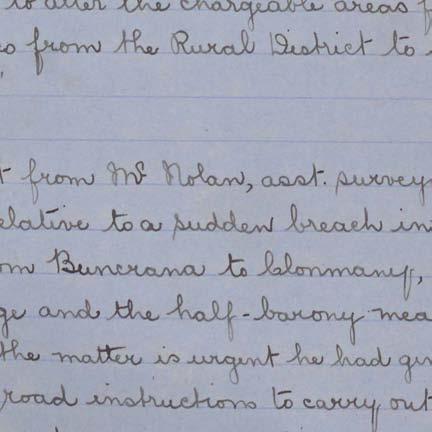 to alter the chargeable areas f
s from the Rural District to
t from Mr Nolan, asst. survey
elative to a sudden breach in
om Buncrana to Clonmany,
ge and the half-barony mea
the matter is urgent he had giv
road instructions to carry out